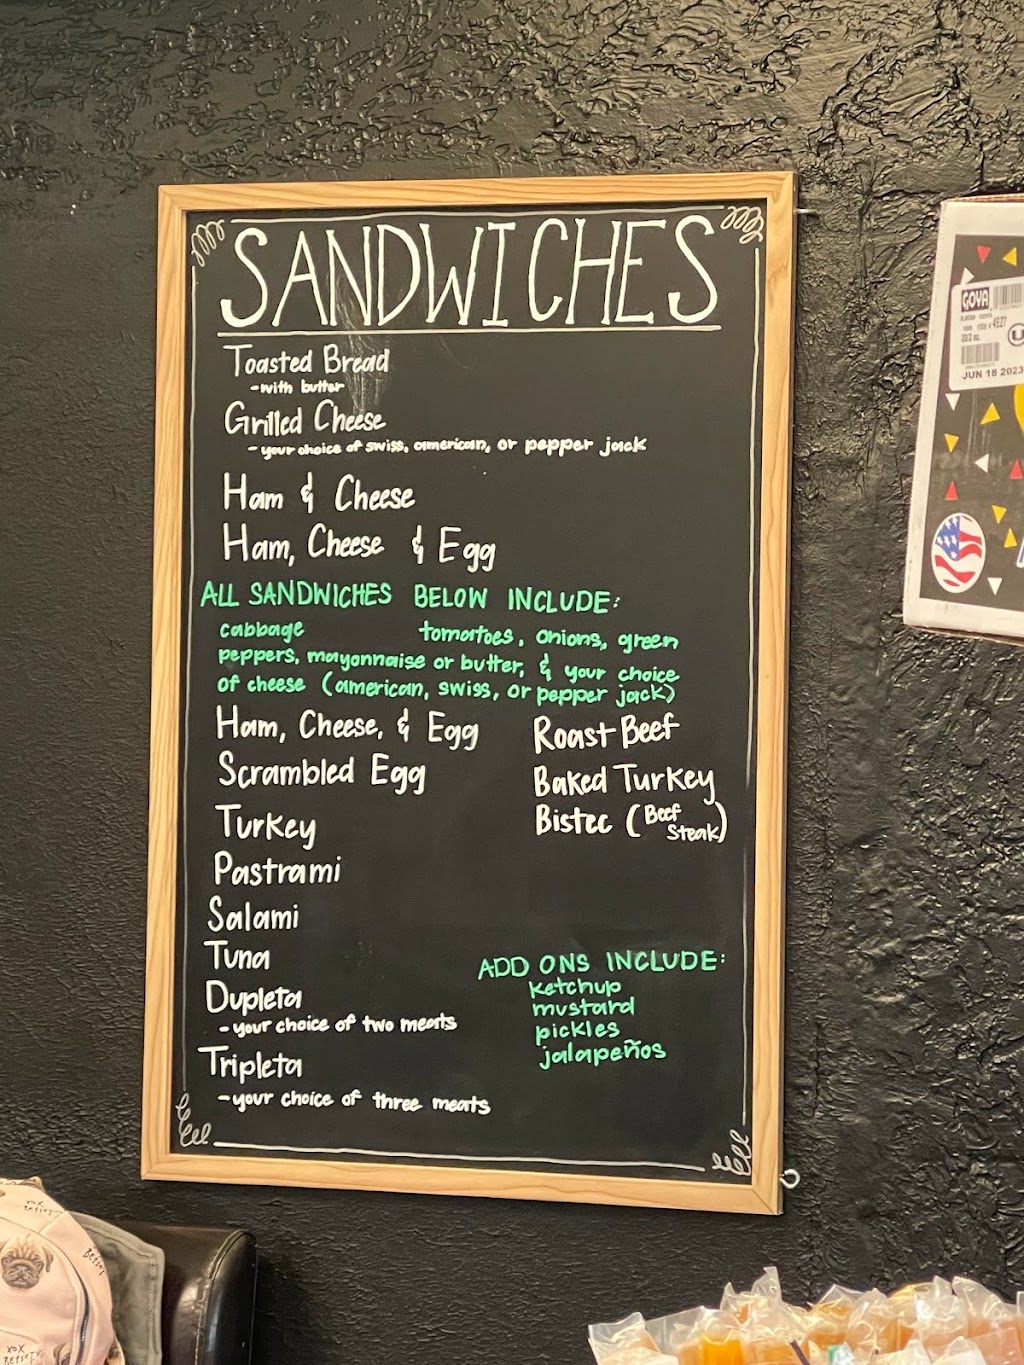 SANDWICHES
Toasted Bread
-with butter
Grilled Cheese
-your choice of swiss, american, or pepper jack
Ham & Cheese
Ham, Cheese & Egg
ALL SANDWICHES BELOW INCLUDE:
cabbage tomatoes, onions, green
peppers, mayonnaise or butter, & your choice
of cheese (american, swiss, or pepper jack)
Ham, Cheese, & Egg
Scrambled Egg
Turkey
Pastrami
Salami
Tuna
Dupleta
-your choice of two meats
Tripleta
-your choice of three meats
Roast Beef
Baked Turkey
Bistec (Beef
Steak)
ADD ONS INCLUDE:
ketchup
mustard
pickles
jalapeños
GOYA
4927
JUN 18 2023
xox
BETSEY
xox